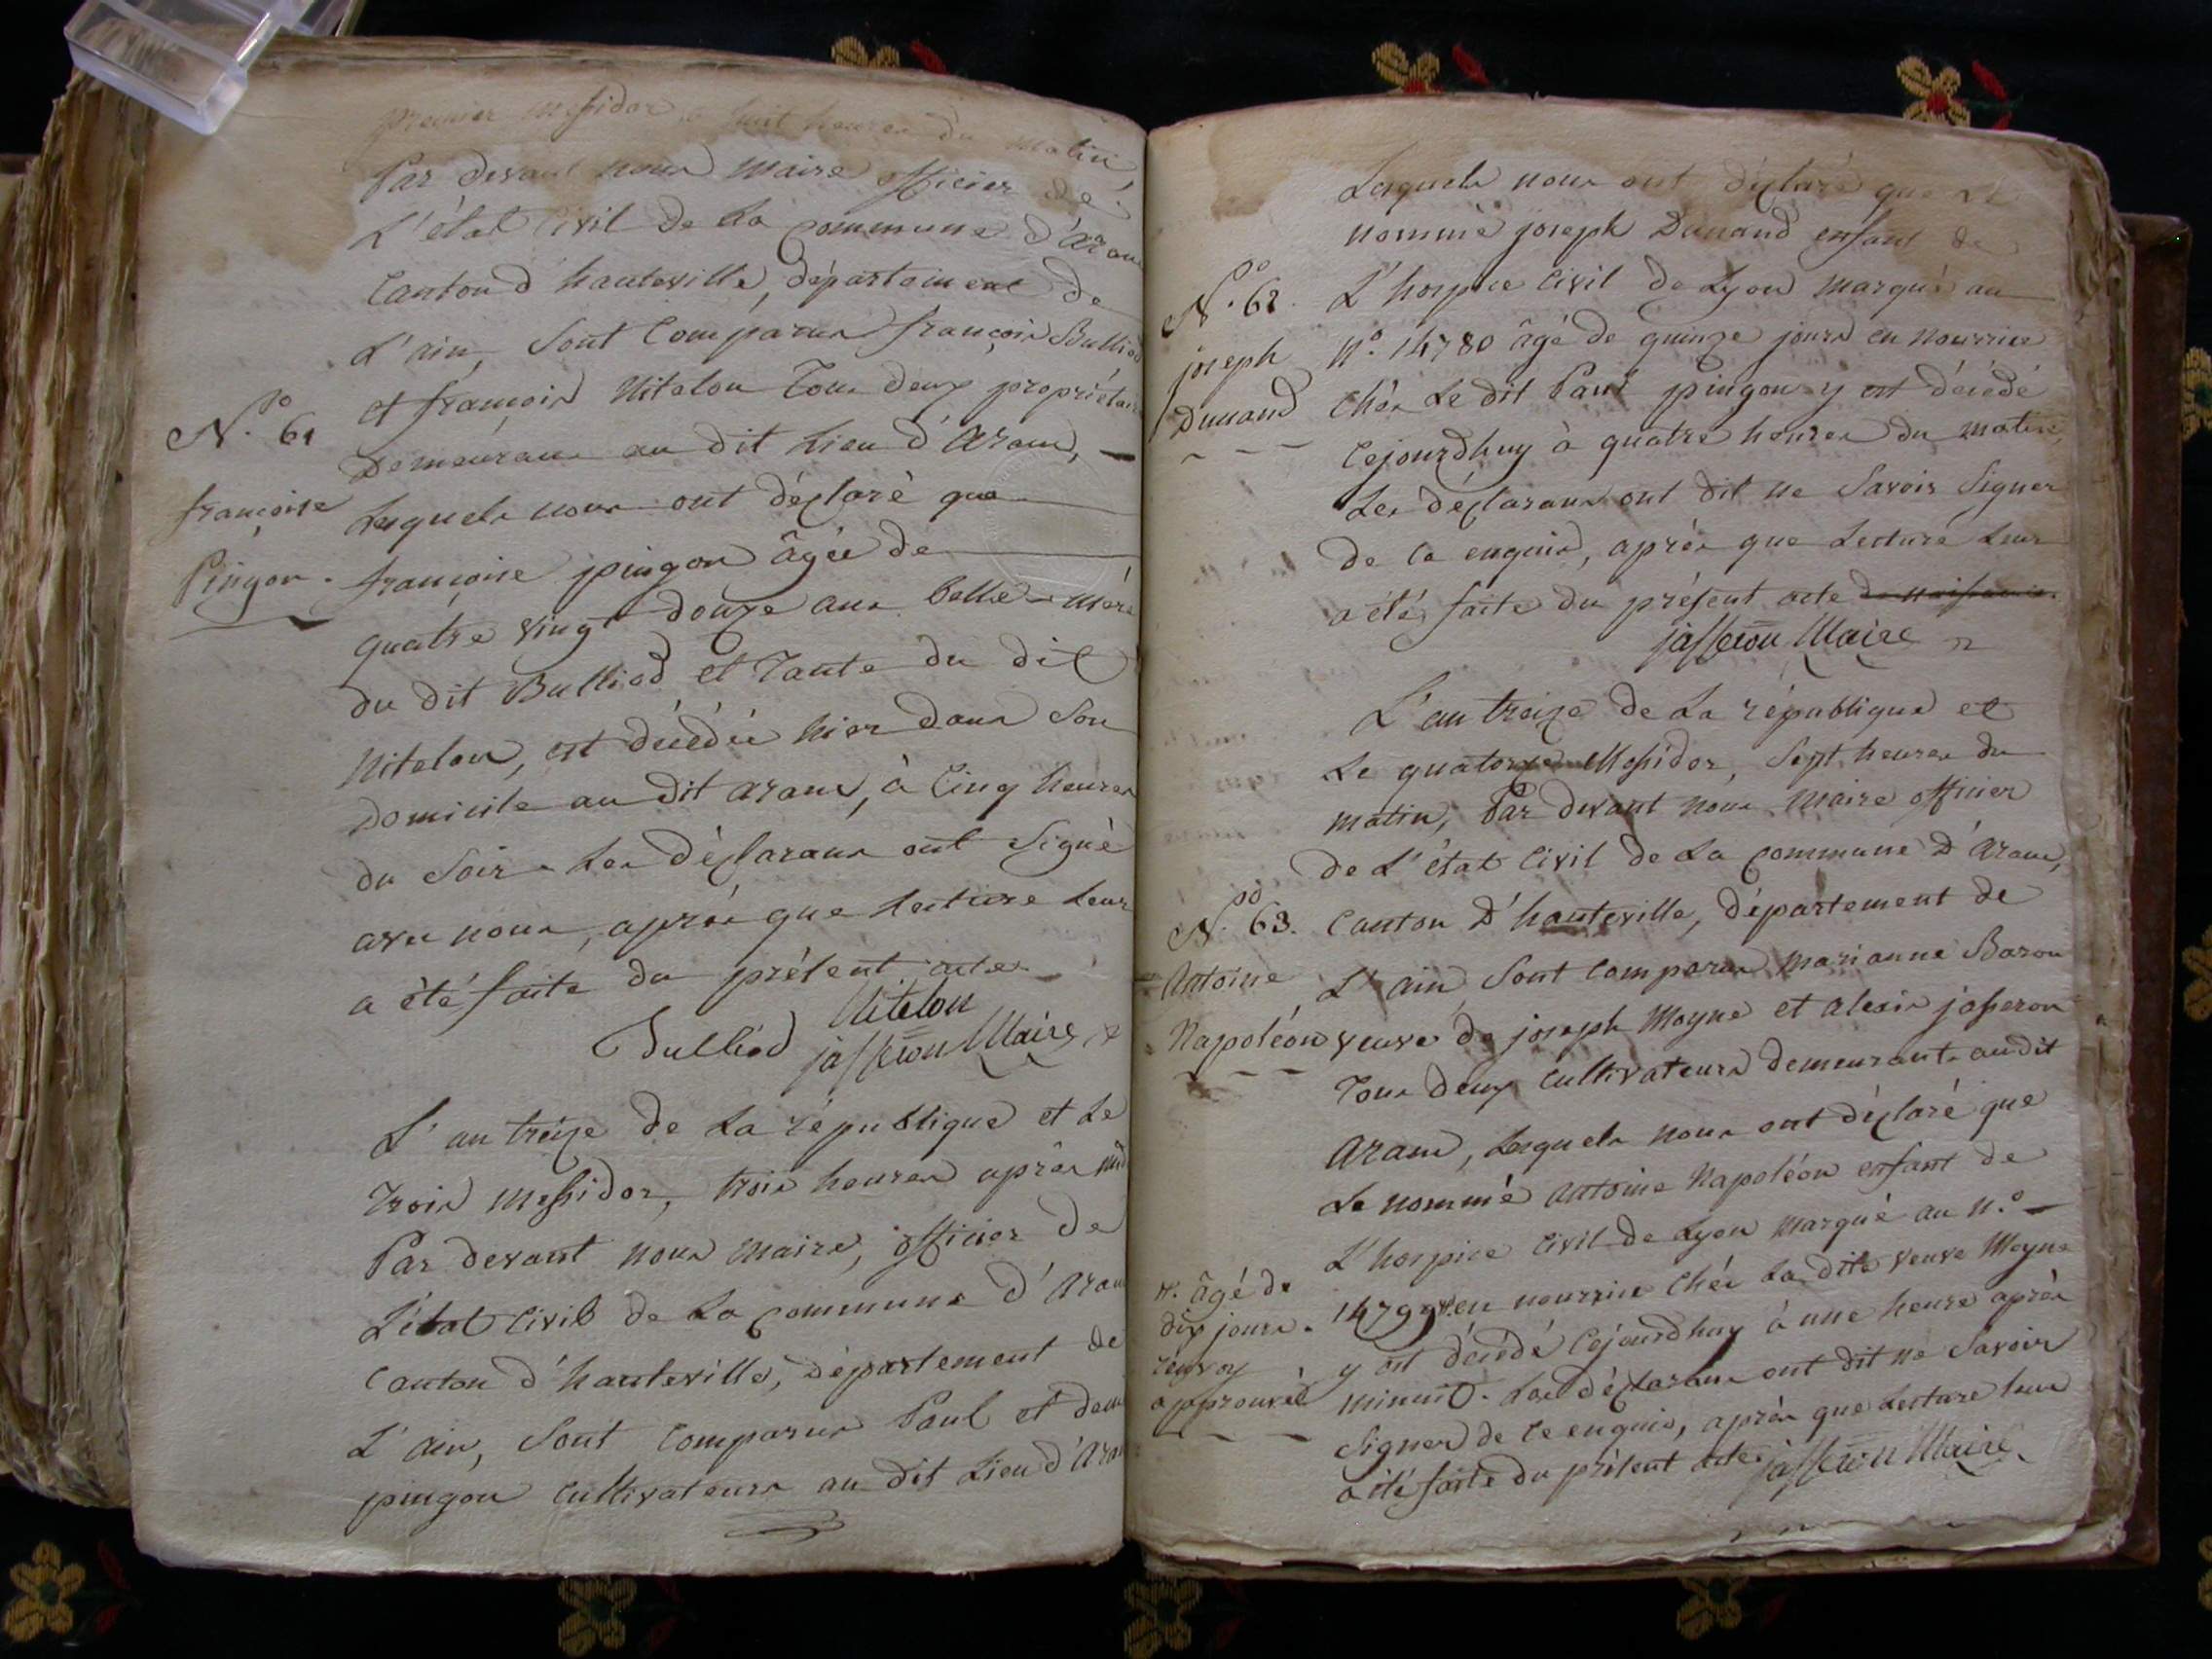 premier messidor à huit heures du matin,
Par devant nous maire officier de
L'état Civil de La Commune d'Aran
Canton d'hauteville, département de
L'ain, Sont Comparus françois Bulliod
N.º 61
et françois Nitelon Tous deux propriétair
Demeurans au dit Lieu d'Aran,
françoise
Lesquels nous ont déclaré que
Pingon.
françoise pingon âgée de
quatre vingt douze ans belle-mère
du dit Bulliod et Tante du dit
Nitelon, est décédée hier dans Son
Domicile au dit aranc, à Cinq heures
du Soir. Les Déclarans ont Signé
avec nous, après que Lecture Leur
a été faite du présent acte
Nitelon
Bulliod jasseron Maire
L'an treize de La république et Le
Trois Messidor, trois heures après mid
Par devant nous maire, officier de
L'état Civil de La Commune d'Aran
Canton d'hauteville, département de
L'ain, Sont Comparus Paul et
pingon Cultivateurs au dit Lieu d'Aran
Lesquels nous ont déclaré que Le
nommé joseph Dunand enfant de
N.º 62.
L'hospice Civil de Lyon marqué au
joseph
Nº. 14780 âgé de quinze jours en nourrice
Dunand
Chés Le dit Paul pingon y est décédé
Cejourdhuy à quatre heures du matin,
Les déclarans ont dit ne Savoir Signer
de Ce enquis, après que Lecture Leur
a été faite du présent acte de naissance.
jasseron Maire
L'an treize de La république et
Le quatorze Messidor, Sept heures du
matin, Par devant nous Maire officier
de L'état Civil de La Commune D'Aranc,
N.º 63.
Canton D'hauteville, département de
Antoine
L'ain Sont Comparus marianne Baron
Napoléon
veuve de joseph Moyne et alexis jasseron
Tous deux Cultivateurs demeurants au dit
Aranc, Lesquels nous ont déclaré que
Le nommé Antoine Napoléon enfant de
L'hospice Civil de Lyon marqué au N.º
âgé de
dix jours.
renvoy
approuvé
14799 en nourrice Chés La dite veuve Moyne
y est décédé Cejourdhuy à une heure après
minuit. Les déclarans ont dit ne Savoir
Signer de Ce enquis, après que Lecture Leur
a été faite du présent acte. jasseron Maire